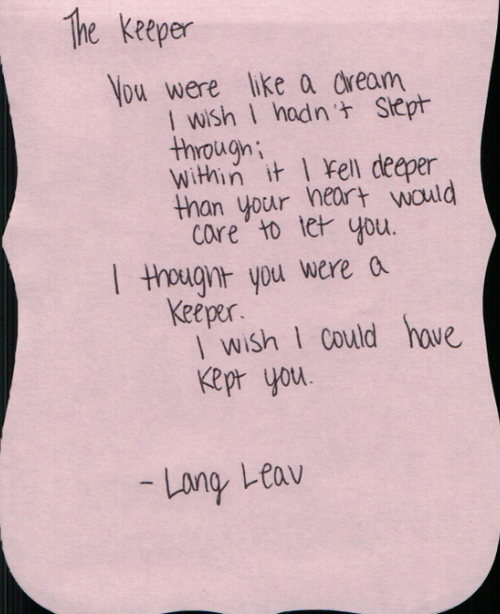 The Keeper
You were like a dream
I wish I hadn't slept
through;
within it I fell deeper
than your heart would
care to let you.
I thought you were a
Keeper.
I wish I could have
kept you.
- Lang Leav